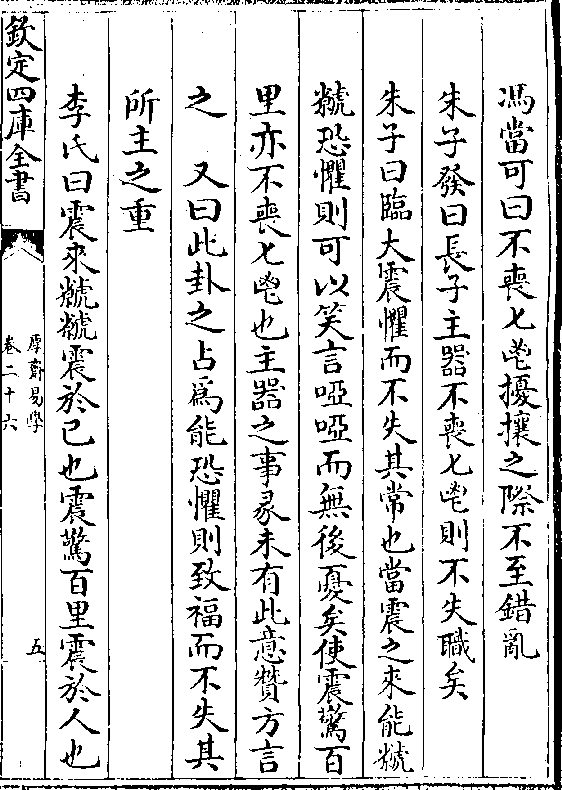 馮當可曰不喪匕鬯擾攘之際不至錯亂
朱子發曰長子主器不喪匕鬯則不失職矣
朱子曰臨大震懼而不失其常也當震之來能虩
虩恐懼則可以笑言啞啞而無後憂矣使震驚百
里亦不喪匕鬯也主器之事彖未有此意贊方言
之　又曰此卦之占爲能恐懼則致福而不失其
所主之重
李氏曰震來虩虩震於己也震驚百里震於人也
欽定四庫全書
厚齋易學
卷二十六
五